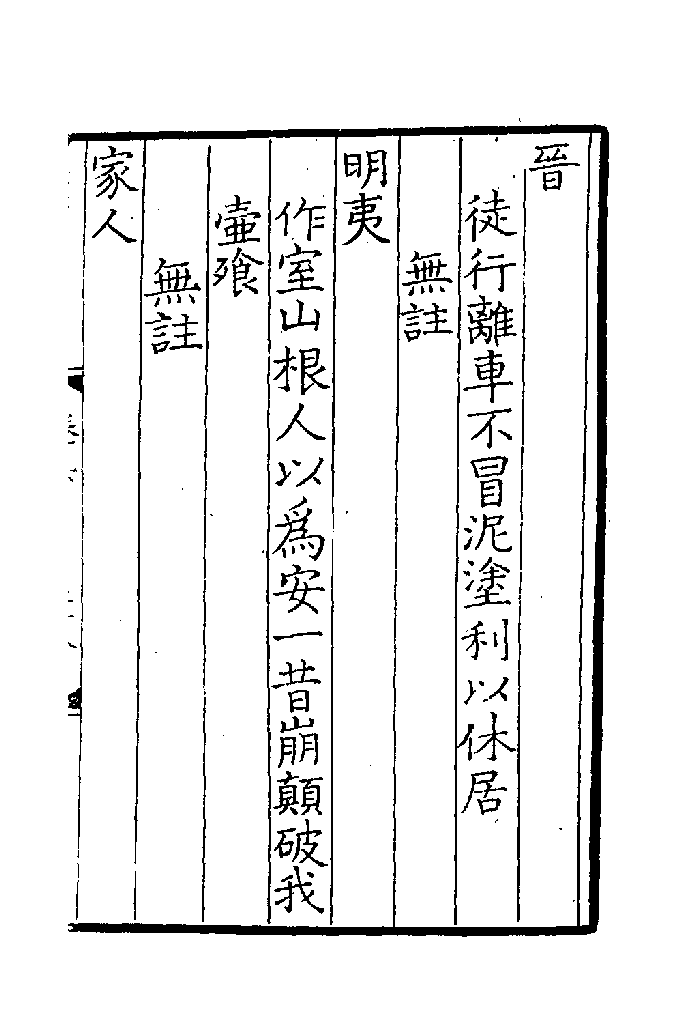 晉
徒行離車不冒泥塗利以休居
無註
明夷
作室山根人以爲安一昔崩顛破我
壷飱
無註
家人